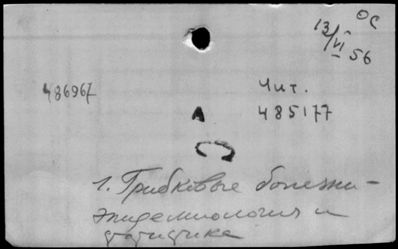 ОС
13/VI 56
486967
Чит.
А
485177
1. Грибковые болезни -
эпидемиология и
статистика